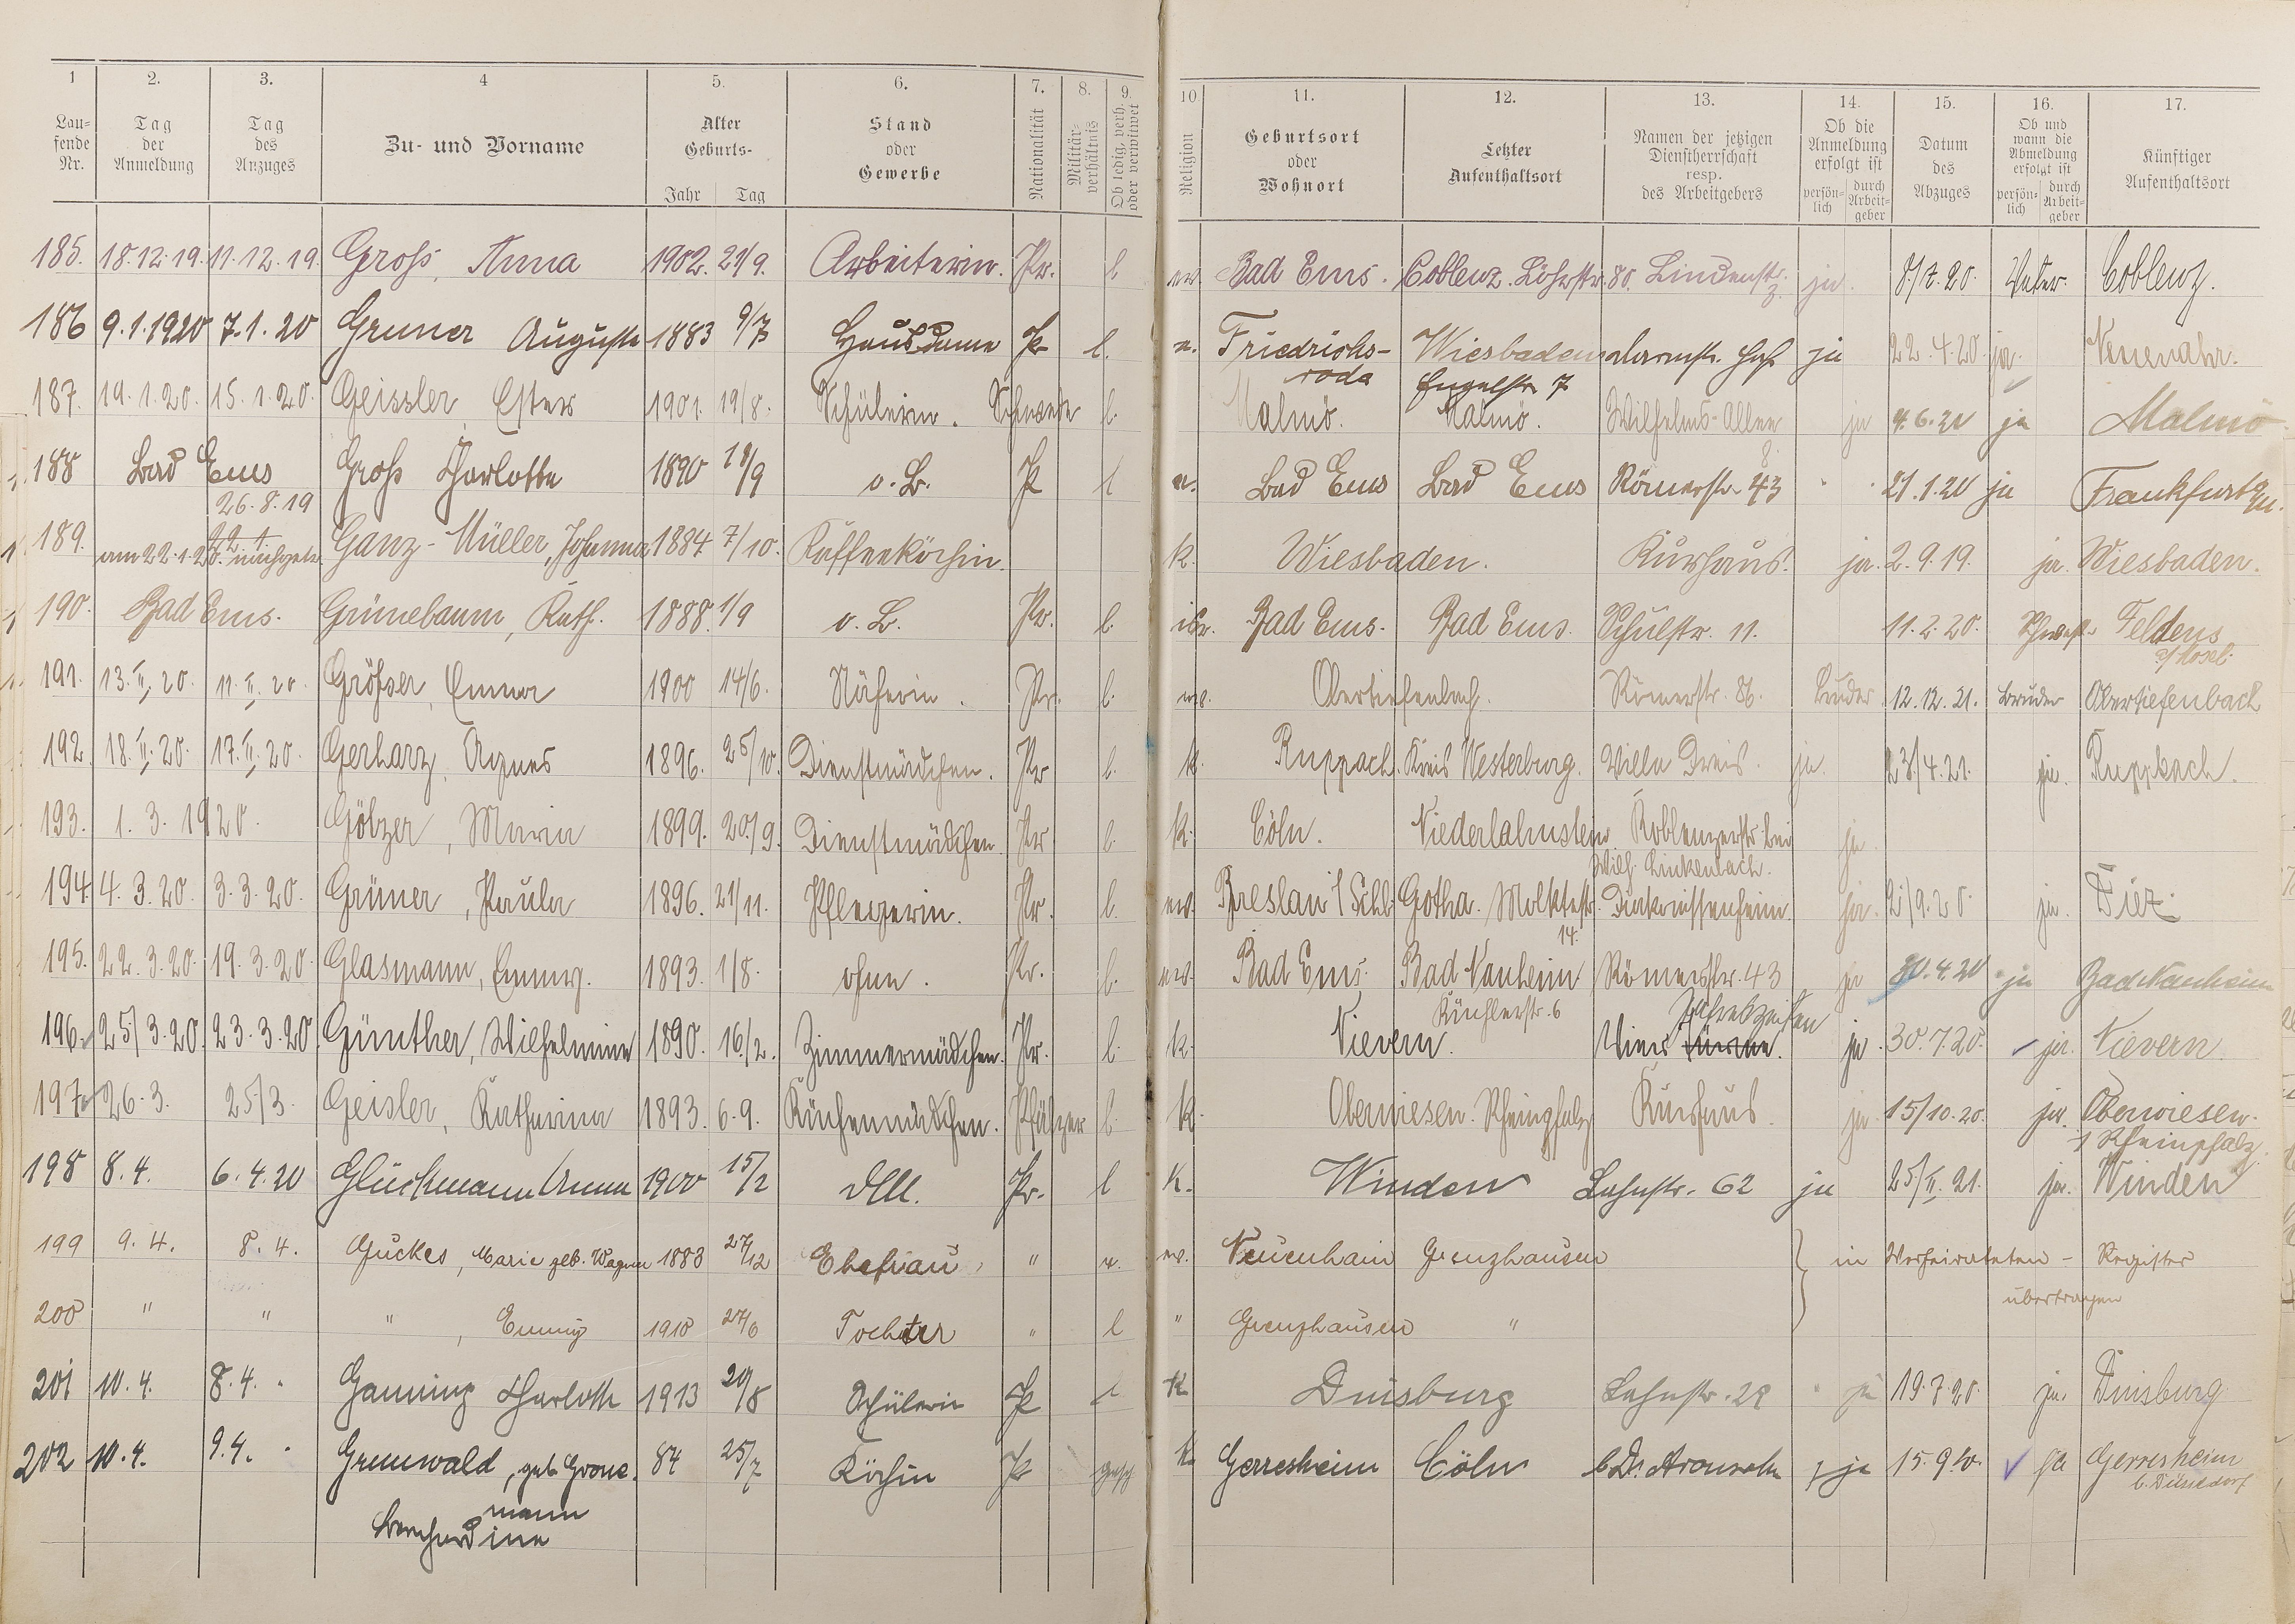 1 2. 3. 4 5. 6. 7. 8. 9. 10. 11. 12. 13. 14. 15. 16. 17.
Laufende Nr. Tag der Anmeldung Tag des Anzuges Zu- und Vorname Alter Geburts- Jahr Tag Stand oder Gewerbe Nationalität Militärverhältnis Ob ledig, verh. oder verwitwet Religion Geburtsort oder Wohnort Letzter Aufenthaltsort Namen der jetzigen Dienstherrschaft resp. des Arbeitgebers Ob die Anmeldung erfolgt ist persönlich durch Arbeitgeber Datum des Abzuges Ob und wann die Abmeldung erfolgt ist persönlich durch Arbeitgeber Künftiger Aufenthaltsort
185. 18.12.19. 11.12.19. Groß, Anna 1902. 21/9. Arbeiterin. Pr. l ev. Bad Ems. Coblenz. Löhrstr. 80. Lindenstr. ja. 8/7.20. Vater. Coblenz.
186 9.1.1920 7.1.20 Gruner Auguste 1883 9/7 Hausdame Pr l. e. Friedrichs- Wiesbaden ja 22.4.20. ja. Neuenahr.
roda
187. 19.1.20. 15.1.20. Geissler, Ester 1901. 19/8. Schülerin. Schwede l. Malmö. Malmö. Wilhelms-Allee ja 4.6.20 ja Malmö
8.
188 Bad Ems Groß Charlotte 1890 18/9 o.B. P l e. Bad Ems Bad Ems Römerstr 43 21.1.20 ja Frankfurt a/M.
26.8.19
189. am 22.1.20. Ganz-Müller, Johanna 1884 7/10. Kaffeeköchin. k. Wiesbaden. Kurhaus. ja. 2.9.19. ja. Wiesbaden.
190. Bad Ems. Grünebaum, Kath. 1888. 1/9 o.B. Pr. l. isr. Bad Ems. Bad Ems. Schulstr. 11. 11.2.20. Schwest. Feldens
a/Mosel.
191. 13.II.20. 11.II.20 Größer, Emma 1900 14/6. Näherin. Pr. l. ev. Obertiefenbach. Römerstr. 86. Bruder 12.12.21. Bruder Obertiefenbach
192. 18.II.20. 17.II.20. Gerharz, Agnes 1896. 25/10. Dienstmädchen. Pr l. k. Ruppach. Kreis Westerburg. Villa Dreis. ja. 23/4.21. ja. Ruppach.
193. 1.3.1920. Gölzer, Maria 1899. 20./9. Dienstmädchen Pr l. k. Cöln. Niederlahnstein. Koblenzerstr. bei ja
Wilh. Linkenbach.
194. 4.3.20. 3.3.20. Grüner, Paula 1896. 21/11. Pflegerin. Pr. l. ev. Breslau i/Schl. Gotha. Molktestr. Diakonissenheim. ja. 2/9.20. ja. Diez.
14.
195. 22.3.20. 19.3.20. Glasmann, Emmy. 1893. 1/8. ohne. Pr. l. ev. Bad Ems. Bad Nauheim Römerstr. 43 ja 30.4.20 ja Bad Nauheim
Küchlerstr. 6
196. 25/3.20. 23.3.20. Günther, Wilhelmine 1890. 16./2. Zimmermädchen. Pr. l. k. Nievern. Vier Jahreszeiten ja. 30.7.20. ja. Nievern.
197. 26.3. 25/3. Geisler, Katharina 1893. 6.9. Küchenmädchen. Pfälzer l. k. Oberwiesen. Rheinpfalz Kurhaus. ja. 15/10.20. ja. Oberwiesen.
Rheinpfalz.
198 8.4. 6.4.20 Glückmann Anna 1900 15/2 Pr. l k. Winden Lahnstr. 62 ja 25/II.21. ja. Winden
199 9.4. 8.4. Guckes, Marie geb. Wagner 1883 27/12 Ehefrau " v. ev. Neuenhain Grenzhausen in Verheirateten- Register
übertragen
200 " " ", Emmy 1910 27/6 Tochter " l " Grenzhausen "
201 10.4. 8.4. Ganning Charlotte 1913 20/8 Schülerin P l k. Duisburg Lahnstr. 28 ja 19.7.20. ja. Duisburg
202 10.4. 9.4. Grunwald, geb. Grone- 84 25/7 Köchin P gesch k. Gerresheim Cöln b. Dr. ja 15.9.20. ja Gerresheim
b. Düsseldorf
mann
Bernhardine